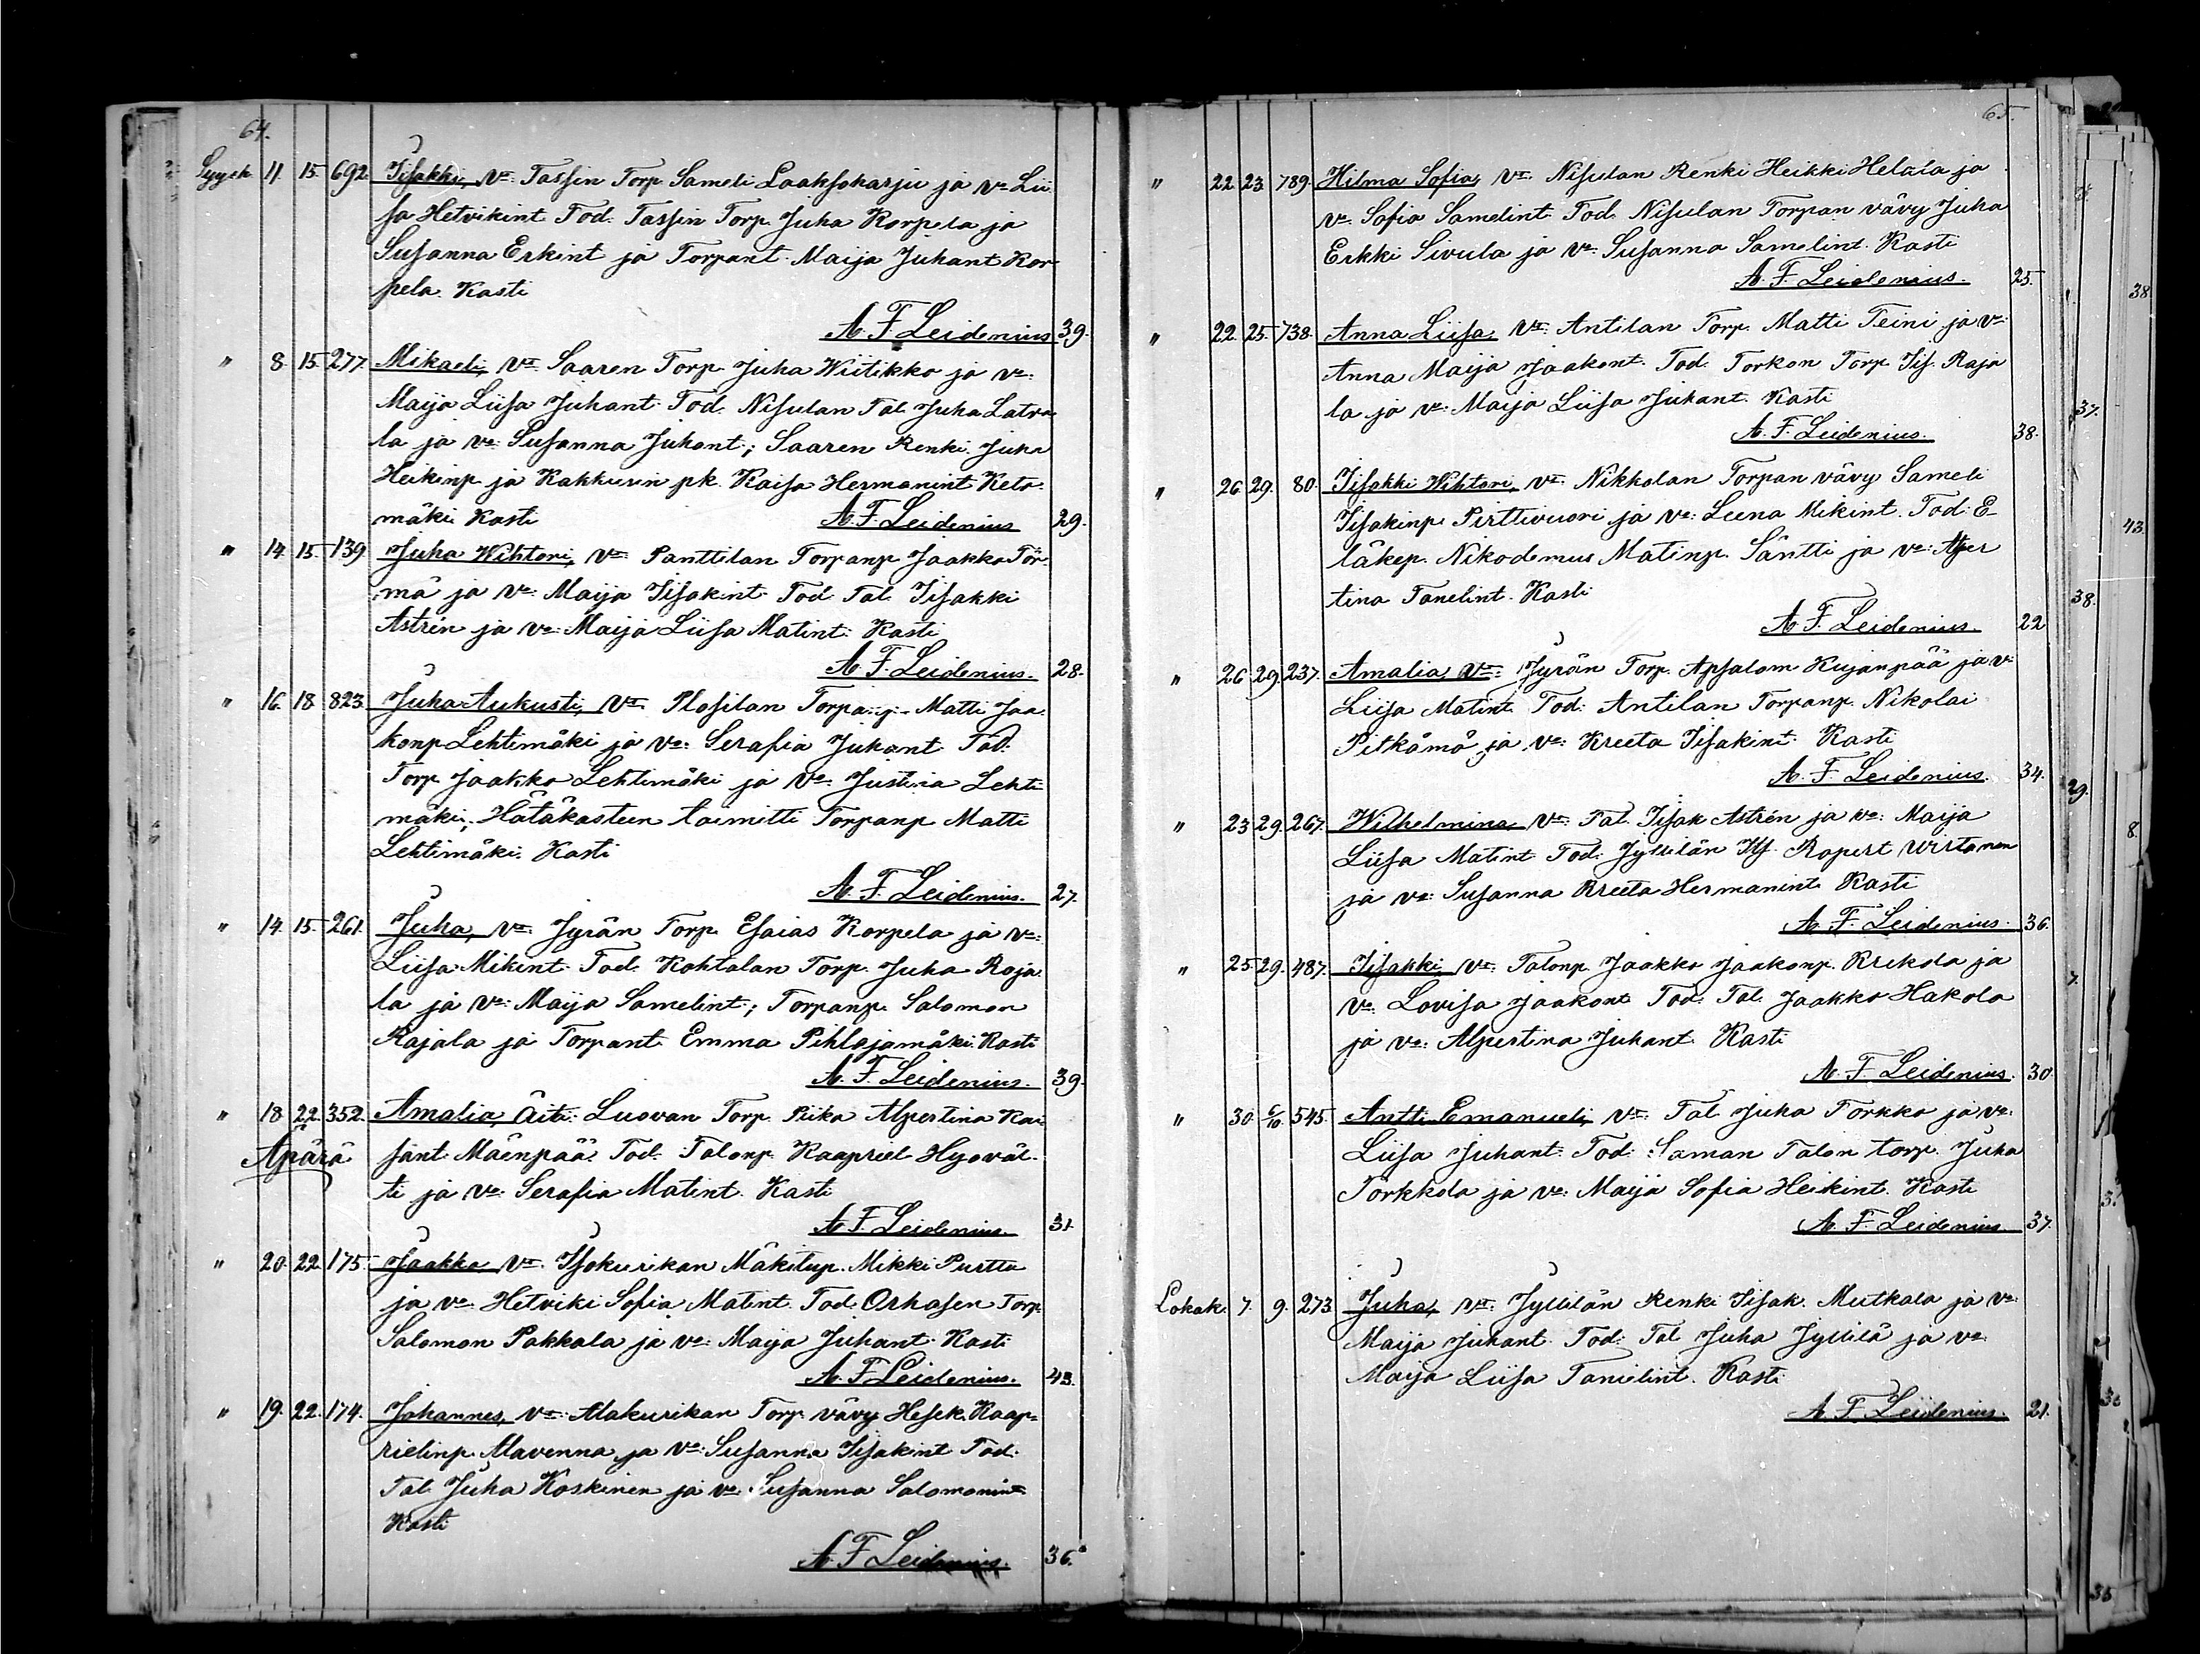 64.
Syysk. 11. 15. 692. Iisakki, Vt. Tassin Torp. Sameli Laaksoharju ja Vo. Lii
sa Hetvikint. Tod. Tassin Torp. Juha Korpela ja
Susanna Erkint. ja Torpant. Maija Juhant. Kor-
pela. Kasti
A. F. Leidenius 39.
" 8. 15. 277. Mikaeli, Vt. Saaren Torp. Juha Wiitikko ja Vo:
Maija Liisa Juhant. Tod. Nisulan Tal. Juha Latva
la ja Vo: Susanna Juhant.; Saaren Renki Juha
Heikinp. ja Kakkurin pk. Kaisa Hermanint. Keto-
mäki. Kasti A. F. Leidenius 29.
" 14. 15. 139. Juha Wihtori, Vt. Panttilan Torpanp. Jaakko Tör-
mä ja Vo: Maija Iisakint. Tod. Tal. Iisakki
Astrén ja Vo: Maija Liisa Matint. Kasti
A. F. Leidenius. 28.
" 16. 18. 823. Juha Aukusti, Vt. Plosilan Torpanp. Matti Jaa
konp. Lehtimäki ja Vo: Serafia Juhant. Tod.
Torp. Jaakko Lehtimäki ja Vo. Justina Lehti
mäki; Hätäkasteen toimitti Torpanp. Matti
Lehtimäki. Kasti
A. F. Leidenius. 27.
" 14. 15. 261. Juha, Vt. Jyrän Torp. Esaias Korpela ja Vo:
Liisa Mikint. Tod. Kohtalan Torp. Juha Raja
la ja Vo: Maija Samelint.; Torpanp. Salomon
Rajala ja Torpant. Emma Pihlajamäki. Kasti
A. F. Leidenius. 39.
" 18. 22. 352. Amalia, Äiti: Luovan Torp. Piika Alpertina Kai
Äpärä sant. Mäenpää. Tod. Talonp. Kaapriel Hyöväl-
ti ja Vo: Serafia Matint. Kasti
A. F. Leidenius. 31.
" 20. 22. 175. Jaakko Vt. Isokurikan Mäkitup. Mikki Purttu
ja Vo: Hetviki Sofia Matint. Tod. Orhasen Torp.
Salomon Pakkala ja Vo: Maija Juhant. Kasti
A. F. Leidenius. 43.
" 19. 22. 174. Johannes, Vt. Alakurikan Torp. vävy Hesek. Kaap-
rielinp. Alavenna ja Vo: Susanna Iisakint. Tod.
Tal. Juha Koskinen ja Vo. Susanna Salomonint
Kasti
A. F. Leidenius. 36.
65.
" 22. 23. 789. Hilma Sofia, Vt. Nisulan Renki Heikki Helala ja
Vo. Sofia Samelint. Tod. Nisulan Torpan vävy Juha
Erkki Sivula ja Vo: Susanna Samelint. Kasti
A. F. Leidenius. 25.
" 22. 25. 738. Anna Liisa, Vt: Antilan Torp. Matti Teini ja Vo:
Anna Maija Jaakont. Tod. Torkon Torp. Iis. Raja
la ja Vo: Maija Liisa Juhant. Kasti
A. F. Leidenius. 38.
" 26. 29. 80. Iisakki Wihtori, Vt. Nikkolan Torpan vävy Sameli
Iisakinp. Pirttivuori ja Vo: Leena Mikint. Tod: E-
läkep. Nikodemus Matinp. Säntti ja Vo: Alper
tina Tanelint. Kasti
A. F. Leidenius. 22
" 26. 29. 237. Amalia, Vt: Jyrän Torp. Apsalom Kujanpää ja V:
Liisa Matint. Tod: Antilan Torpanp. Nikolai
Pitkämö ja Vo: Kreeta Iisakint. Kasti
A. F. Leidenius. 34.
" 23. 29. 267. Wilhelmina, Vt. Tal. Iisak Astrén ja Vo: Maija
Liisa Matint. Tod: Jyllilän Its. Ropert Wirtanen
ja Vo: Susanna Kreeta Hermanint. Kasti
A. F. Leidenius. 36.
" 25. 29. 487. Iisakki Vt: Talonp. Jaakko Jaakonp. Krekola ja
Vo. Lovisa Jaakont. Tod. Tal. Jaakko Hakola
ja Vo: Alpertina Juhant. Kasti
A. F. Leidenius. 30.
" 30. 6/10. 545. Antti Emanueli, Vt: Tal. Juha Torkko ja Vo:
Liisa Juhant. Tod: Saman Talon torp. Juha
Törkkola ja Vo: Maija Sofia Heikint. Kasti
A. F. Leidenius 37.
Lokak. 7. 9. 273. Juha, Vt: Jyllilän Renki Iisak. Mutkala ja Vo:
Maija Juhant. Tod: Tal. Juha Jyllilä ja Vo:
Maija Liisa Tanielint. Kasti
A. F. Leidenius. 21.
38.
37.
43.
38.
29.
8.
7.
36